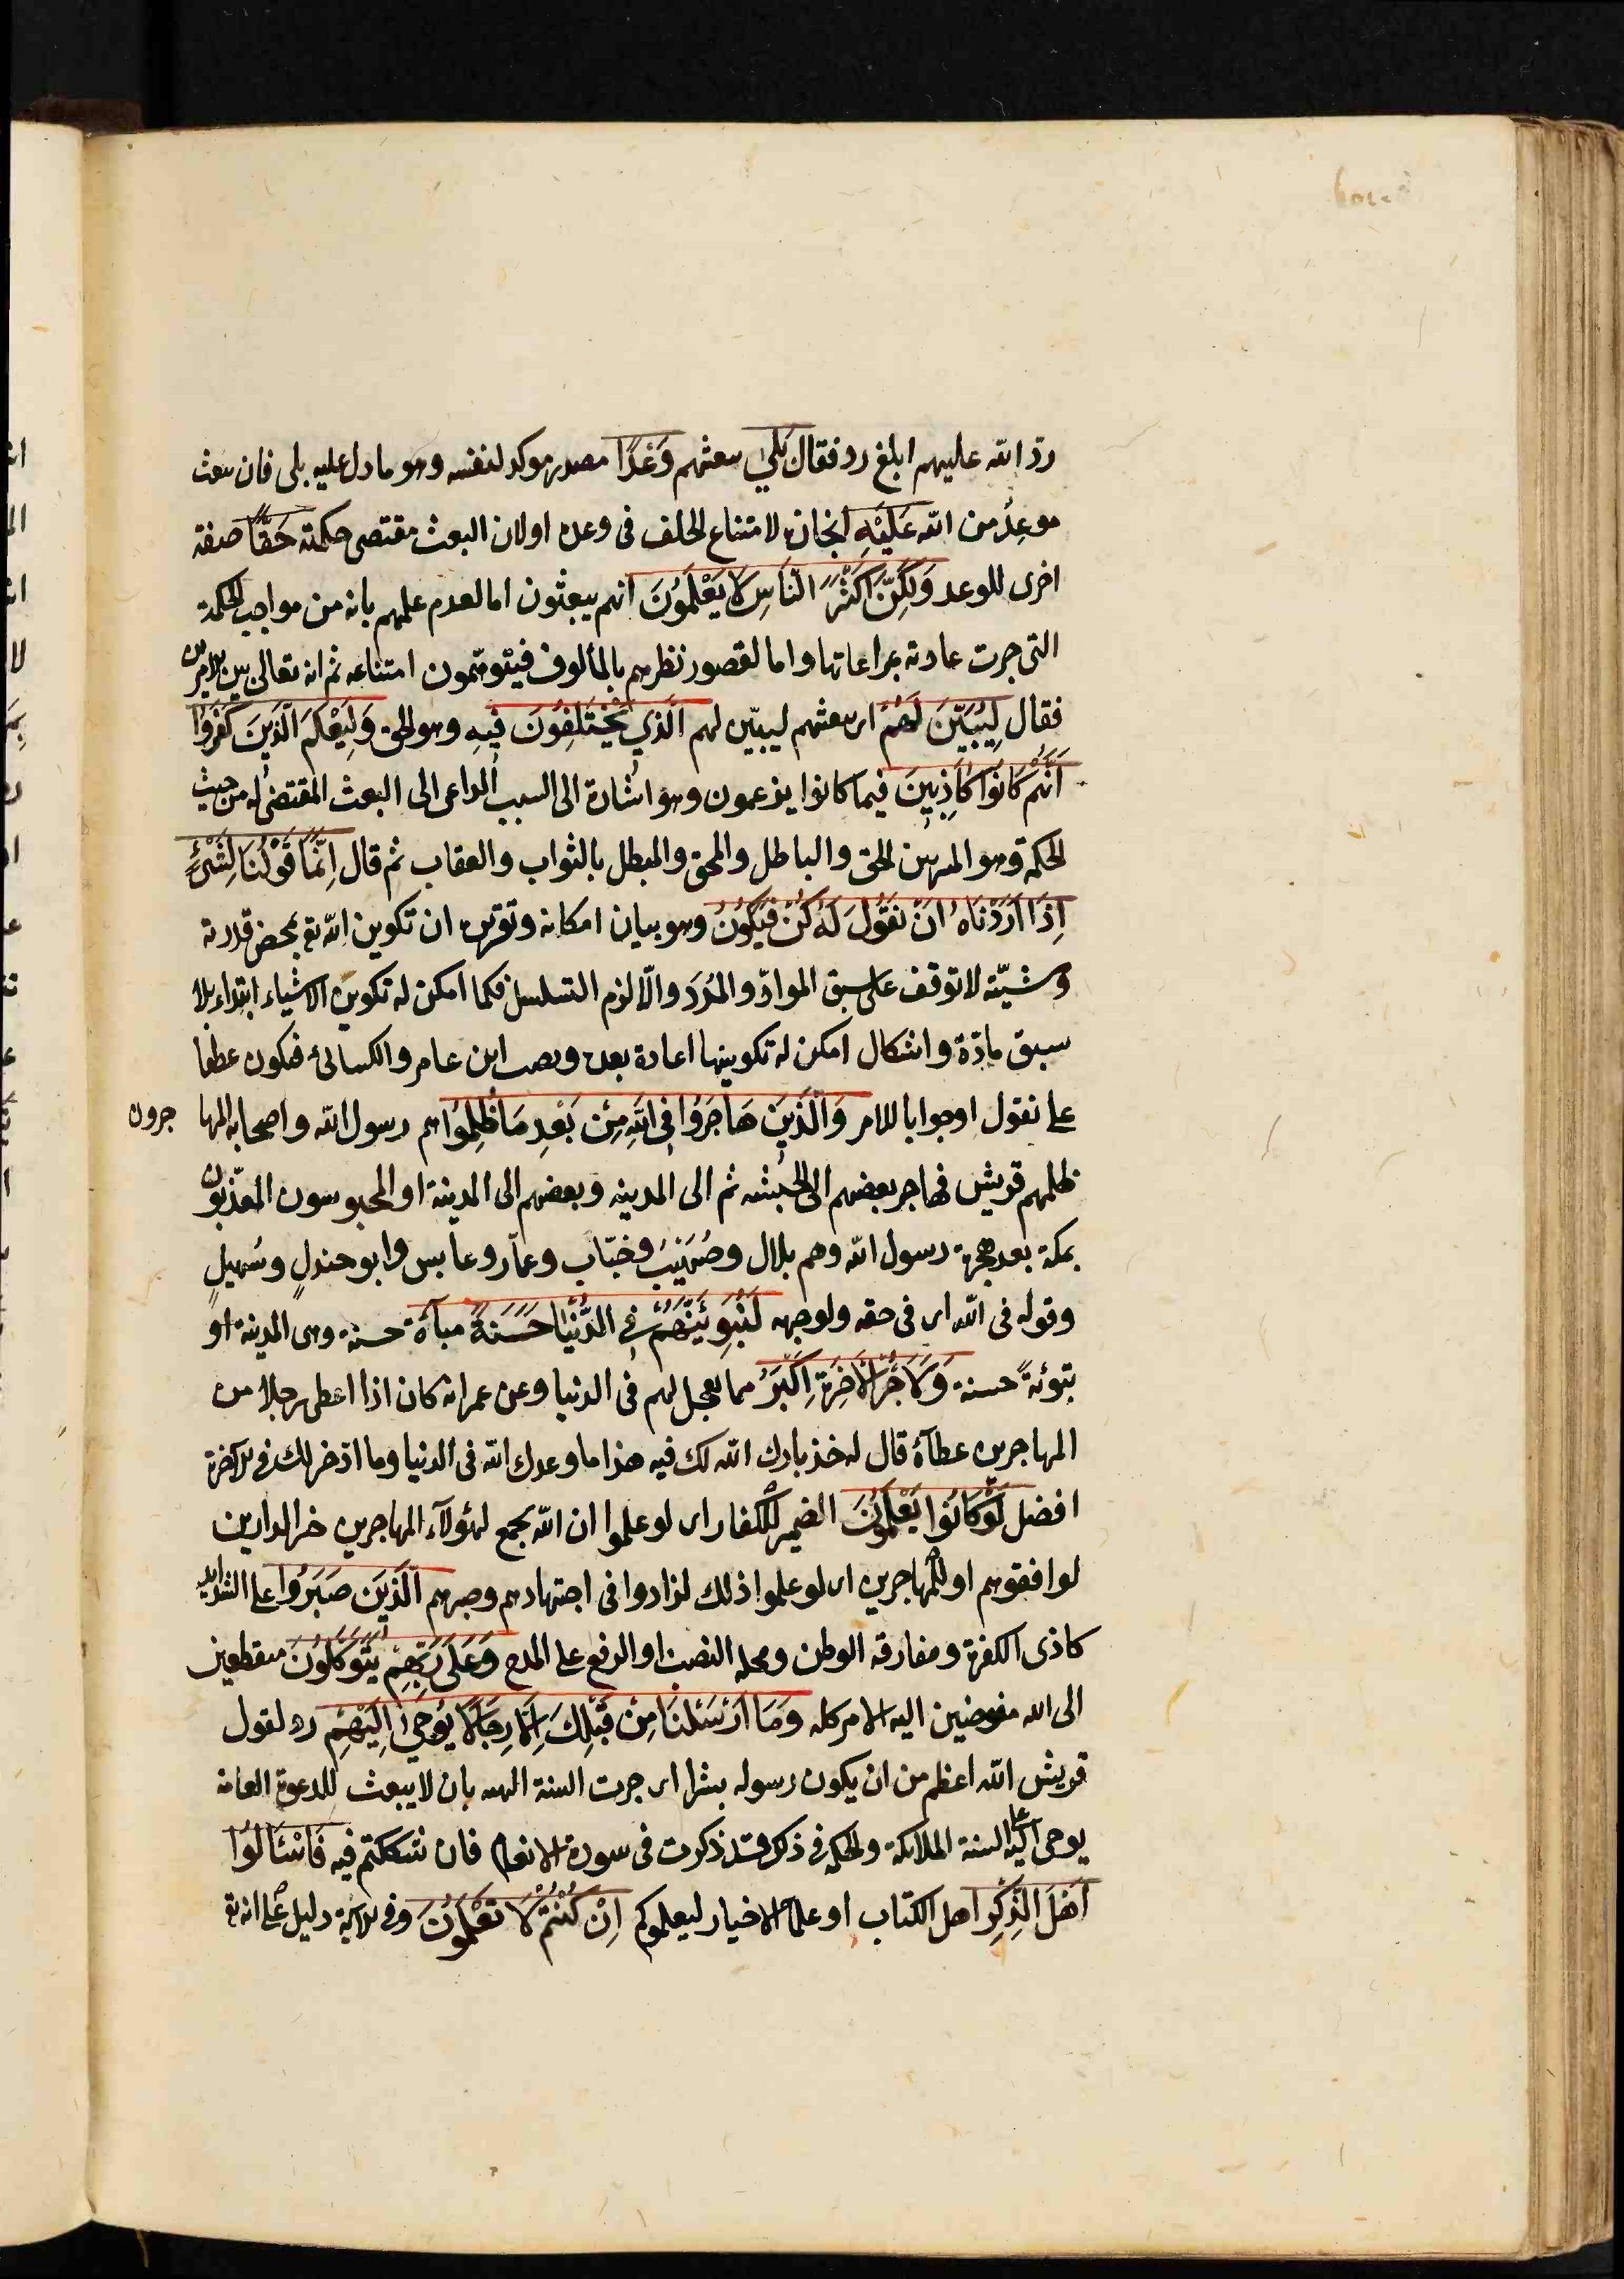 ردّ الله عليهم ابلغ رد فقال بَلٰي يبعثهم وَعْدًا مصدر موكد لنفسه وهو ما دل عليه بلى فان يبعث
موعدٌ من الله عَلَيْهِ انجازه لامتناع الخلف فى وعده او لان البعث مقتضى حكمته حَقًّا صفة
اخرى للوعد وَلٰكِنَّ اَكْثَرَ النَّاسِ لَا يَعْلَمُونَ انهم يبعثون اما لعدم علمهم بانه من مواجب الحكمة
التى جرت عادته بمراعاتها واما لقصور نظرهم بالمألوف فيتوهّمون امتناعه ثم انه تعالى بين الامرين
فقال لِيُبَيِّنَ لَهُمُ اى يبعثهم ليبيّن لهم الَّذِي يَخْتَلِفُونَ فِيهِ وهو الحق وَلِيَعْلَمَ الَّذِينَ كَفَرُوا
اَنَّهُمْ كَانُوا كَاذِبِينَ فيما كانوا يزعمون وهو اشارة الى السبب الداعى الى البعث المقتضى له من حيث
الحكمة وهو الميز بين الحق والباطل والمحق والمبطل بالثواب والعقاب ثم قال اِنَّمَا قَوْلُنَا لِشَيْءٍ
اِذَا اَرَدْنَاهُ اَنْ نَقُولَ لَهُ كُنْ فَيَكُونُ وهو بيان امكانه وتقريره ان تكوين الله تع بمحض قدرته
ومشيّته لا توقف على سبق الموادّ والمُدَد والّا لزم التسلسل فكما امكن له تكوين الاشياء ابتداء بلا
سبق مادّة واشكال امكن له تكوينها اعادة بعده ونصب ابن عامر والكسائى فيكون عطفا
على نقول او جوابا للامر وَالَّذِينَ هَاجَرُوا فِي اللَّهِ مِنْ بَعْدِ مَا ظُلِمُوا هم رسول الله واصحابه المهاجرون
ظلمهم قريش فهاجر بعضهم الى الحبشه ثم الى المدينه وبعضهم الى المدينة او المحبوسون المعذّبون
بمكة بعد هجرة رسول الله وهم بلال وصُهَيْب وخبّاب وعمّار وعابس وابو جندلٍ وسُهيلٍ
وقوله فى الله اى فى حقه ولوجهه لَنُبَوِّئَنَّهُمْ فِي الدُّنْيَا حَسَنَةً مبآءة حسنة وهى المدينة او
تبوئةً حسنة وَلَاَجْرُ الْآخِرَةِ اَكْبَرُ مما يعجل لهم فى الدنيا وعن عمر انه كان اذا اعطى رجلا من
المهاجرين عطآءً قال له خذ بارك الله لك فيه هذا ما وعدك الله فى الدنيا وما ادّخر لك فى الاخرة
افضل لَوْ كَانُوا يَعْلَمُونَ الضمير للكفار اى لو علموا ان الله يجمع لهؤلآء المهاجرين خير الدارين
لوافقوهم او للمهاجرين اى لو علموا ذلك لزادوا فى اجتهادهم وصبرهم الَّذِينَ صَبَرُوا على الشدايد
كاذى الكفرة ومفارقة الوطن ومحله النصب او الرفع على المدح وَعَلٰى رَبِّهِمْ يَتَوَكَّلُونَ منقطعين
الى الله مفوضين اليه الامر كله وَمَا اَرْسَلْنَا مِنْ قَبْلِكَ اِلَّا رِجَالًا يُوحٰي اِلَيْهِمْ رد لقول
قريش الله اعظم من ان يكون رسوله بشرا اى جرت السنة الهيه بان لا يبعث للدعوة العامة
يوحى اليه على السنة الملائكة والحكمة فى ذكر قد ذكرت فى سورة الانعام فان شككتم فيه فَاسْئَالُوا
اَهْلَ الذِّكْرِ اهل الكتاب او علماء الاخيار ليعلموكم اِنْ كُنْتُمْ لَا تَعْلَمُونَ وفى الآية دليل على انه تع